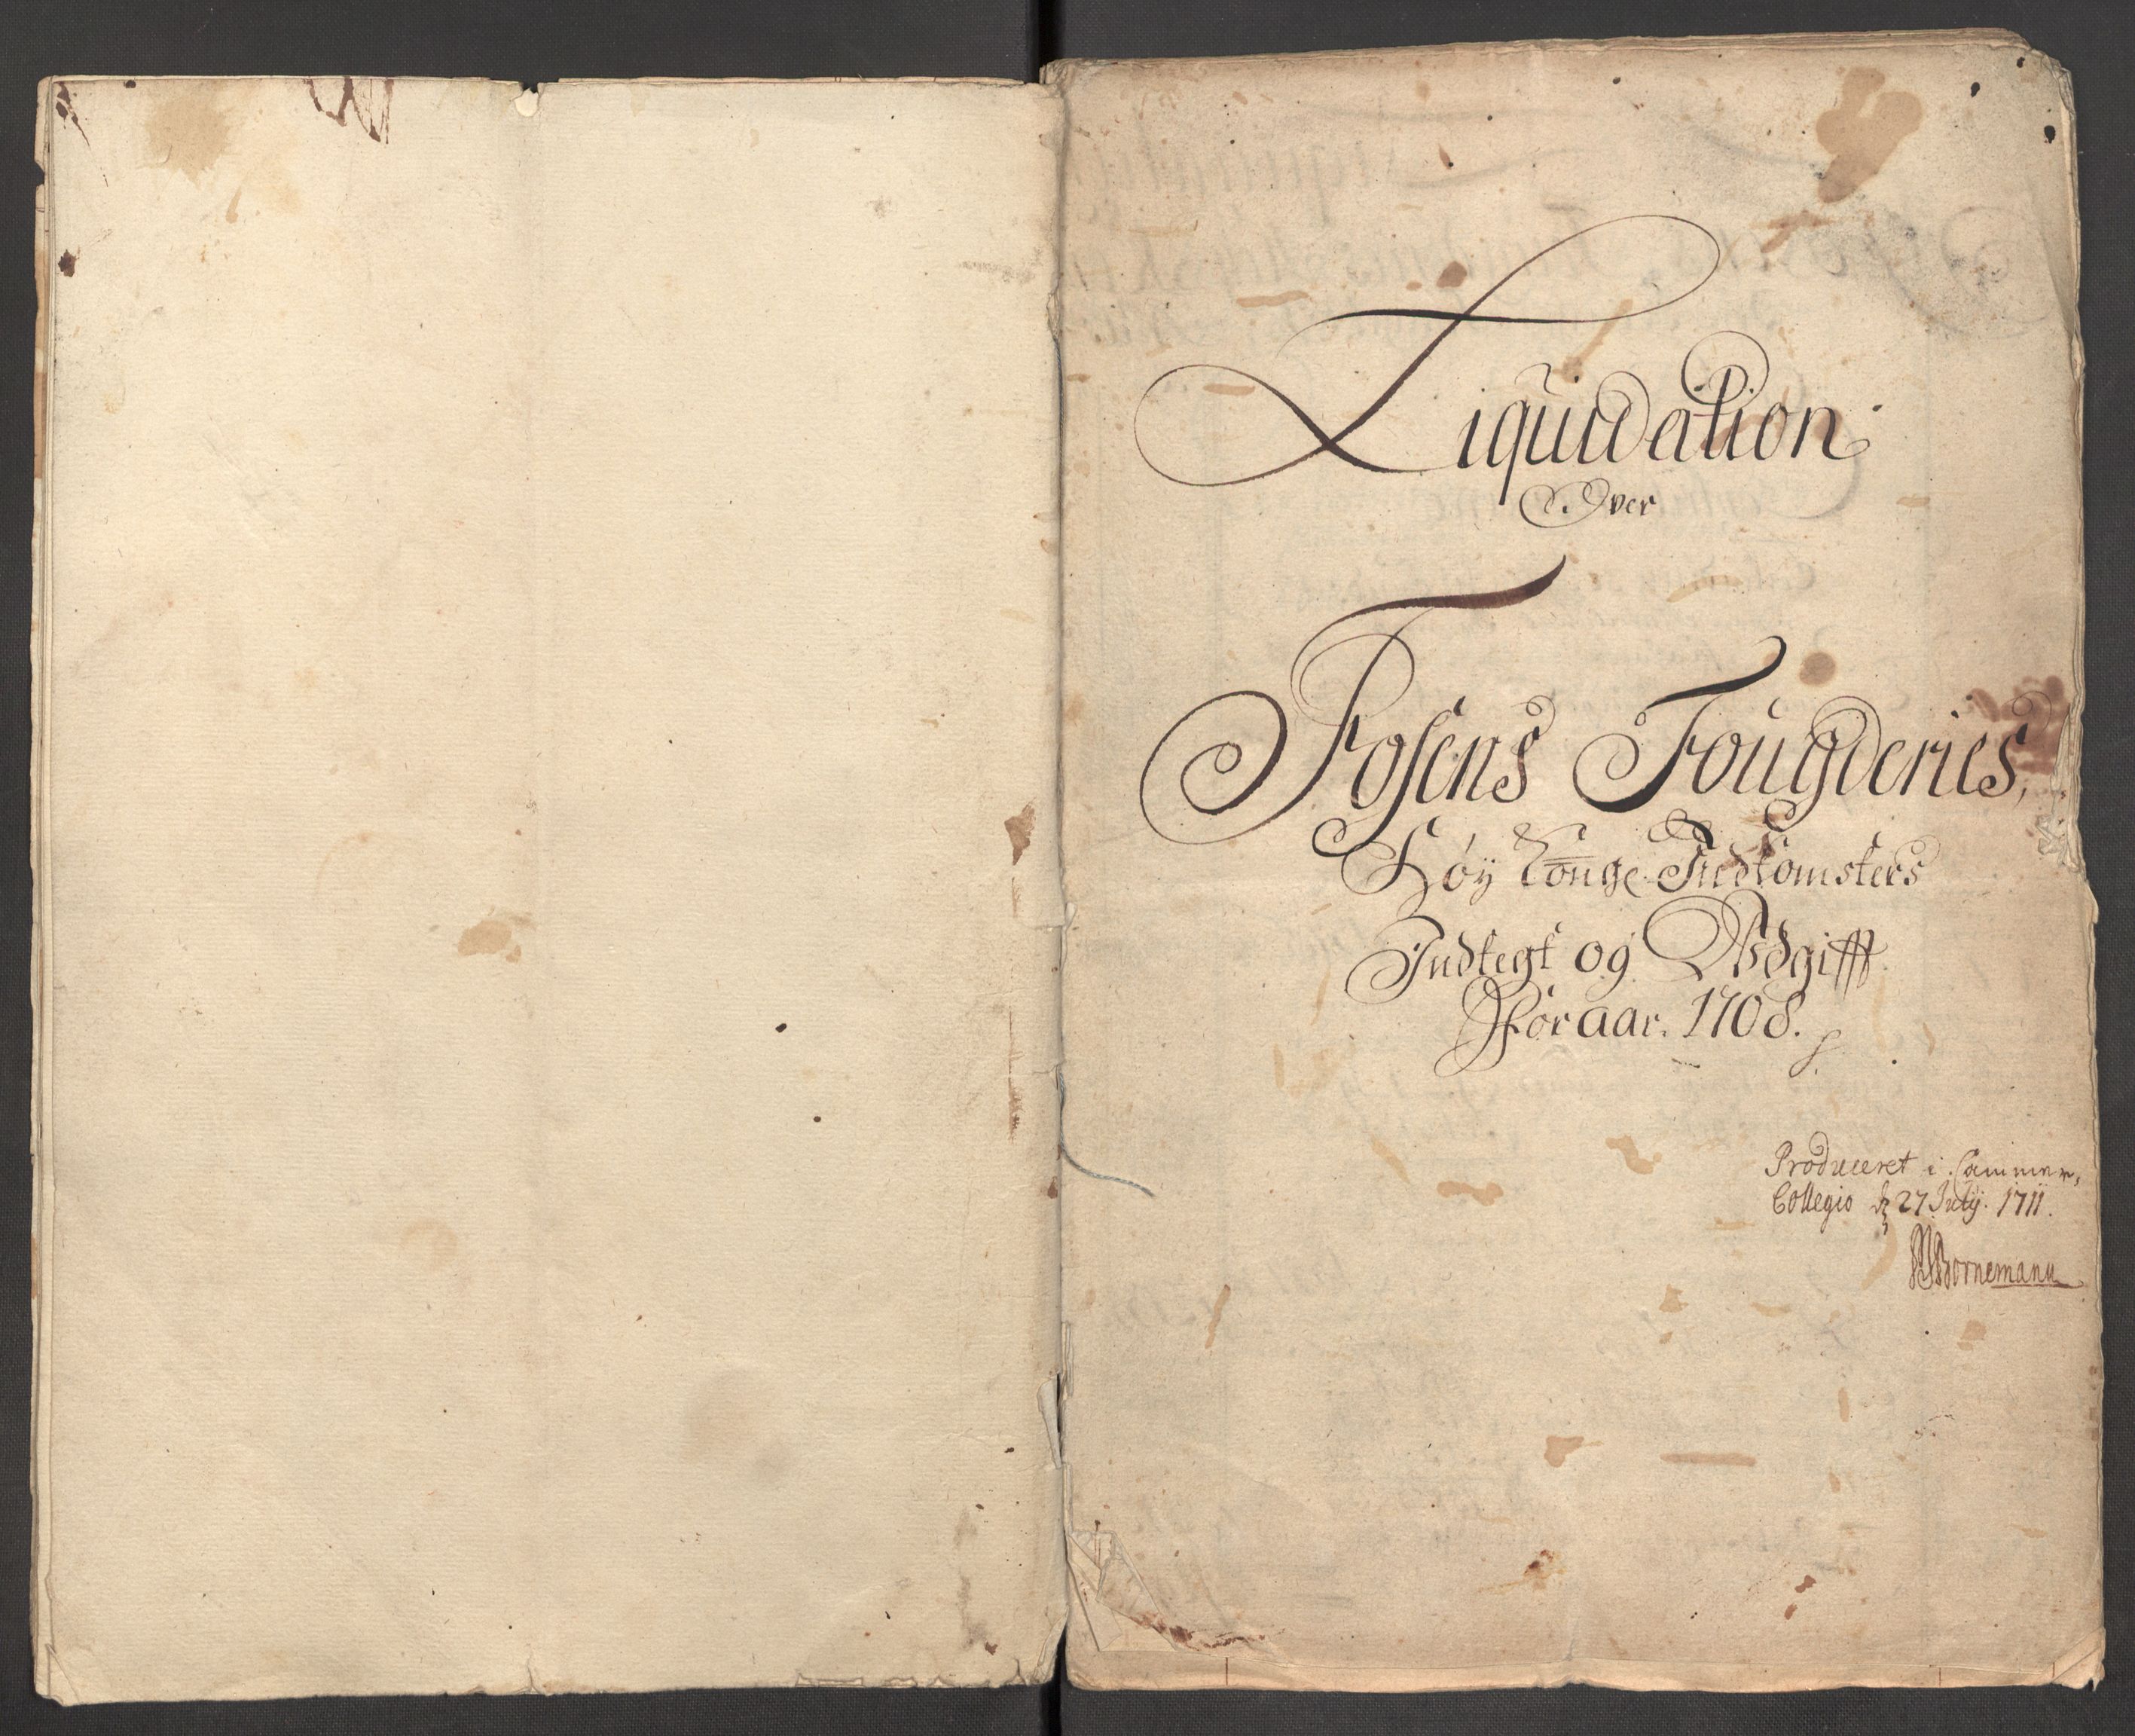 Liquidation
Over
Fosens Fougderies,
Høy Konge Indkomsters
Indtegt og Udgifft
For aar. 1708.
Produceret i Cammer,
Collegio d 27 July. 1711.
Bornemann